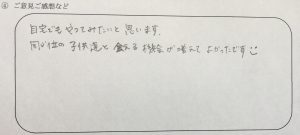 ④ ご意見ご感想など
自宅でもやってみたいと思います。
同年位の子供達と触れる機会が増えてよかったです